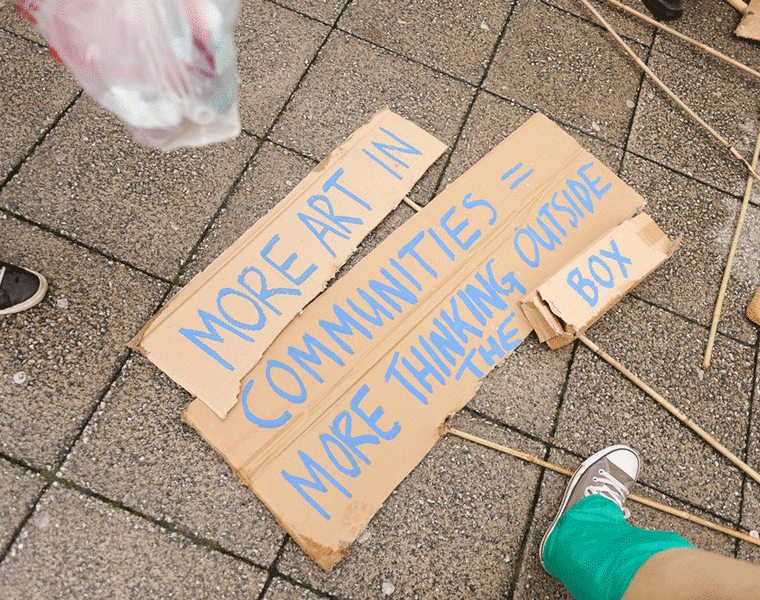 MORE ART IN
COMMUNITIES =
MORE THINKING OUTSIDE
THE BOX